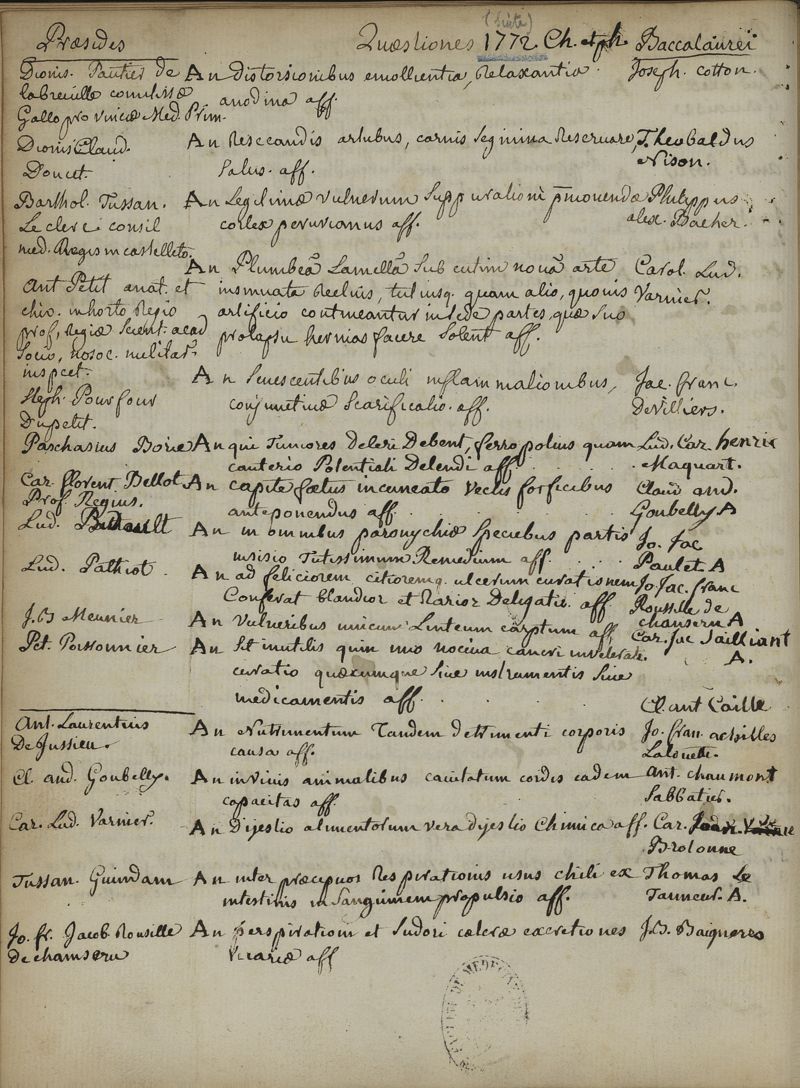 (suite)
Præsides Quæstiones 1772. Ch. et ph Baccalaurei
Dionis. Pautier de An Distorsionibus emollientia, Relaxantia Joseph. Cotton.
labreuille comitissæ anodina aff.
Gallo provinciæ Med. Prim.
Dionis Claud. An Resecandis artubus, carnis segmina Reservare, Theobaldus
Doucet. Salus. aff. Nison.
Barthol. Tussan. An Legitimæ vulnerum Suppurationi p̄movendæ Philippus
Le clerc consil cortex peruvianus aff. alex. Bacher.
med. Regis in castelleto.
An Plumbeâ Lamellâ Sub cutim novâ arte Carol. Lud.
Ant Petit anat. et insinuata Recluis, tutiusq. quam alio, quovis Varnier.
chir. in horto Regio artificio contineantur in sede partes, quæ suo
prof, Regiæ Scient. acad prolapsu hernias facere Solent aff.
Socio, nosoc. militar.
inspect.
An Senescentibus oculi inflammationibus, Jac. franc.
Steph. Pourfour conjunctivæ Scarificatio. aff. Devilliers.
Dupetit.
Paschasius Borie An qui Tumores deleri Debent, ferro potius quam Lud. Car. henric
cauterio Potentiali Delendi aff. Maquart.
Car. florent Bellot An capite fœtus incuneato vectis forficibus Claud and.
Prof. Regius. anteponendus aff. Goubelly A
Lud. An in omnibus paronychiæ speciebus partis Jo. Jac
insisio Tutissimum Remedium aff. Paulet A
Lud. Pathiot. An ad feliciorem citioremq. ulcerum curationem Jo. Jac. franc
Conferat blandior et Rarior Deligatio. aff. Rousille de
chanseru A
J. B Meunier An Vulneribus unicum Linteum carptum aff Car. Jac Sailliant
Pet. Poissonnier An Sit inutilis quin imo nociva cancri inveterati A.
curatio quæcumque sive instrumentis sive
medicamentis aff. Cl. ant Caille
Ant. Laurentius An Nutrimentum Tandem detrimenti corporis Jo. fran. achilles
De Jussieu. causa aff. Lalouette.
Cl. and. Goubelly. An in vivis animalibus cavitatum cordis eadem Ant. chaumont
capacitas aff. Sabbatier.
Car. Lud. Varnier. An Dijestio alimentorum vera dijestio Chimica aff. Car.
Brotonne
Tussan. Guindant An inter præcipuos Respirationis usus chili ex Thomas Le
intestinis in Sanguinem propulsio aff. Tanneur. A.
Jo. fr. Jacob. Rousille An perspirationi et Sudori cæteræ excretiones J. B. Baigneres
de chamseru vicariæ aff